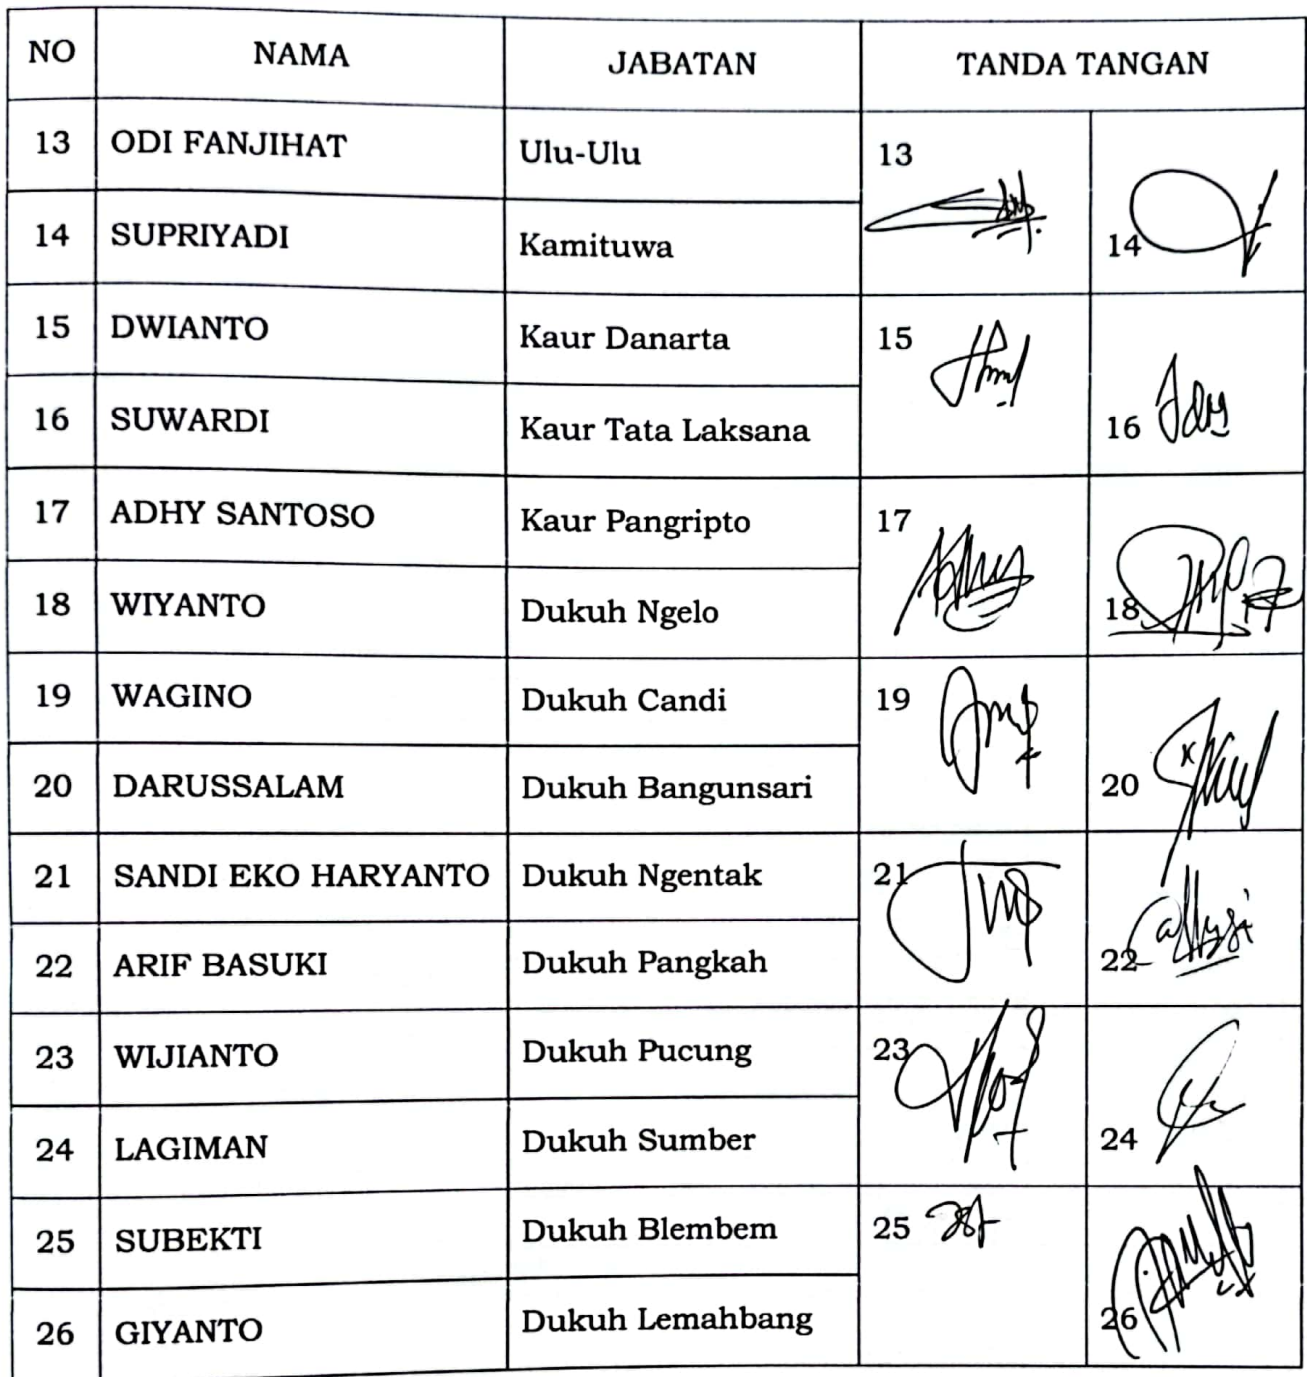 NO NAMA JABATAN TANDA TANGAN
13 ODI FANJIHAT Ulu-Ulu 13
14 SUPRIYADI Kamituwa 14
15 DWIANTO Kaur Danarta 15
16 SUWARDI Kaur Tata Laksana 16
17 ADHY SANTOSO Kaur Pangripto 17
18 WIYANTO Dukuh Ngelo 18
19 WAGINO Dukuh Candi 19
20 DARUSSALAM Dukuh Bangunsari 20
21 SANDI EKO HARYANTO Dukuh Ngentak 21
22 ARIF BASUKI Dukuh Pangkah 22
23 WIJIANTO Dukuh Pucung 23
24 LAGIMAN Dukuh Sumber 24
25 SUBEKTI Dukuh Blembem 25
26 GIYANTO Dukuh Lemahbang 26